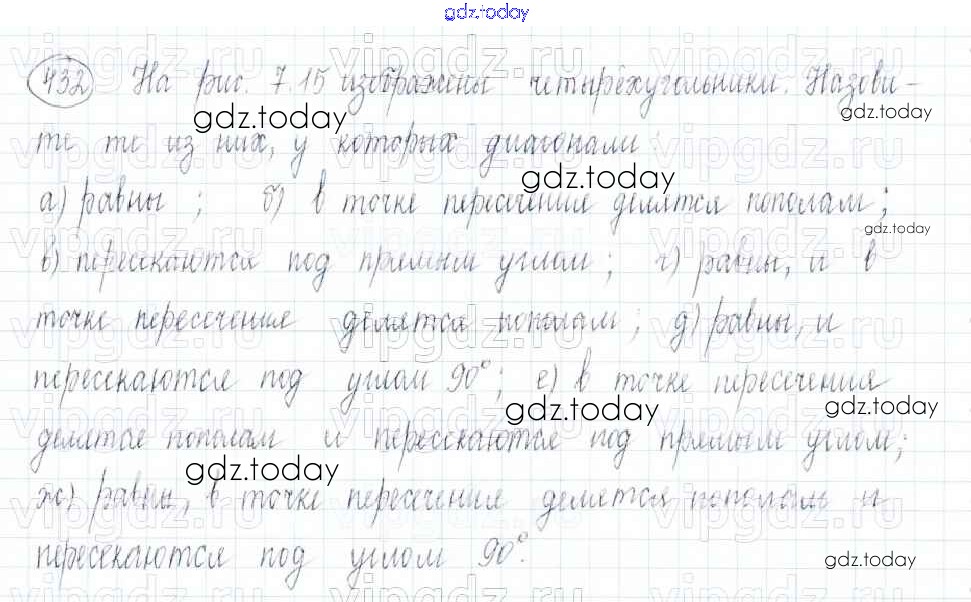 gdz.today
432 На рис. 7.15 изображены четырёхугольники. Назови-
те те из них, у которых диагонали:
а) равны ; б) в точке пересечения делятся пополам;
в) пересекаются под прямым углом; г) равны, и в
точке пересечения делятся пополам; д) равны, и
пересекаются под углом 90°; е) в точке пересечения
делятся пополам и пересекаются под прямым углом;
ж) равны, в точке пересечения делятся пополам и
пересекаются под углом 90°.